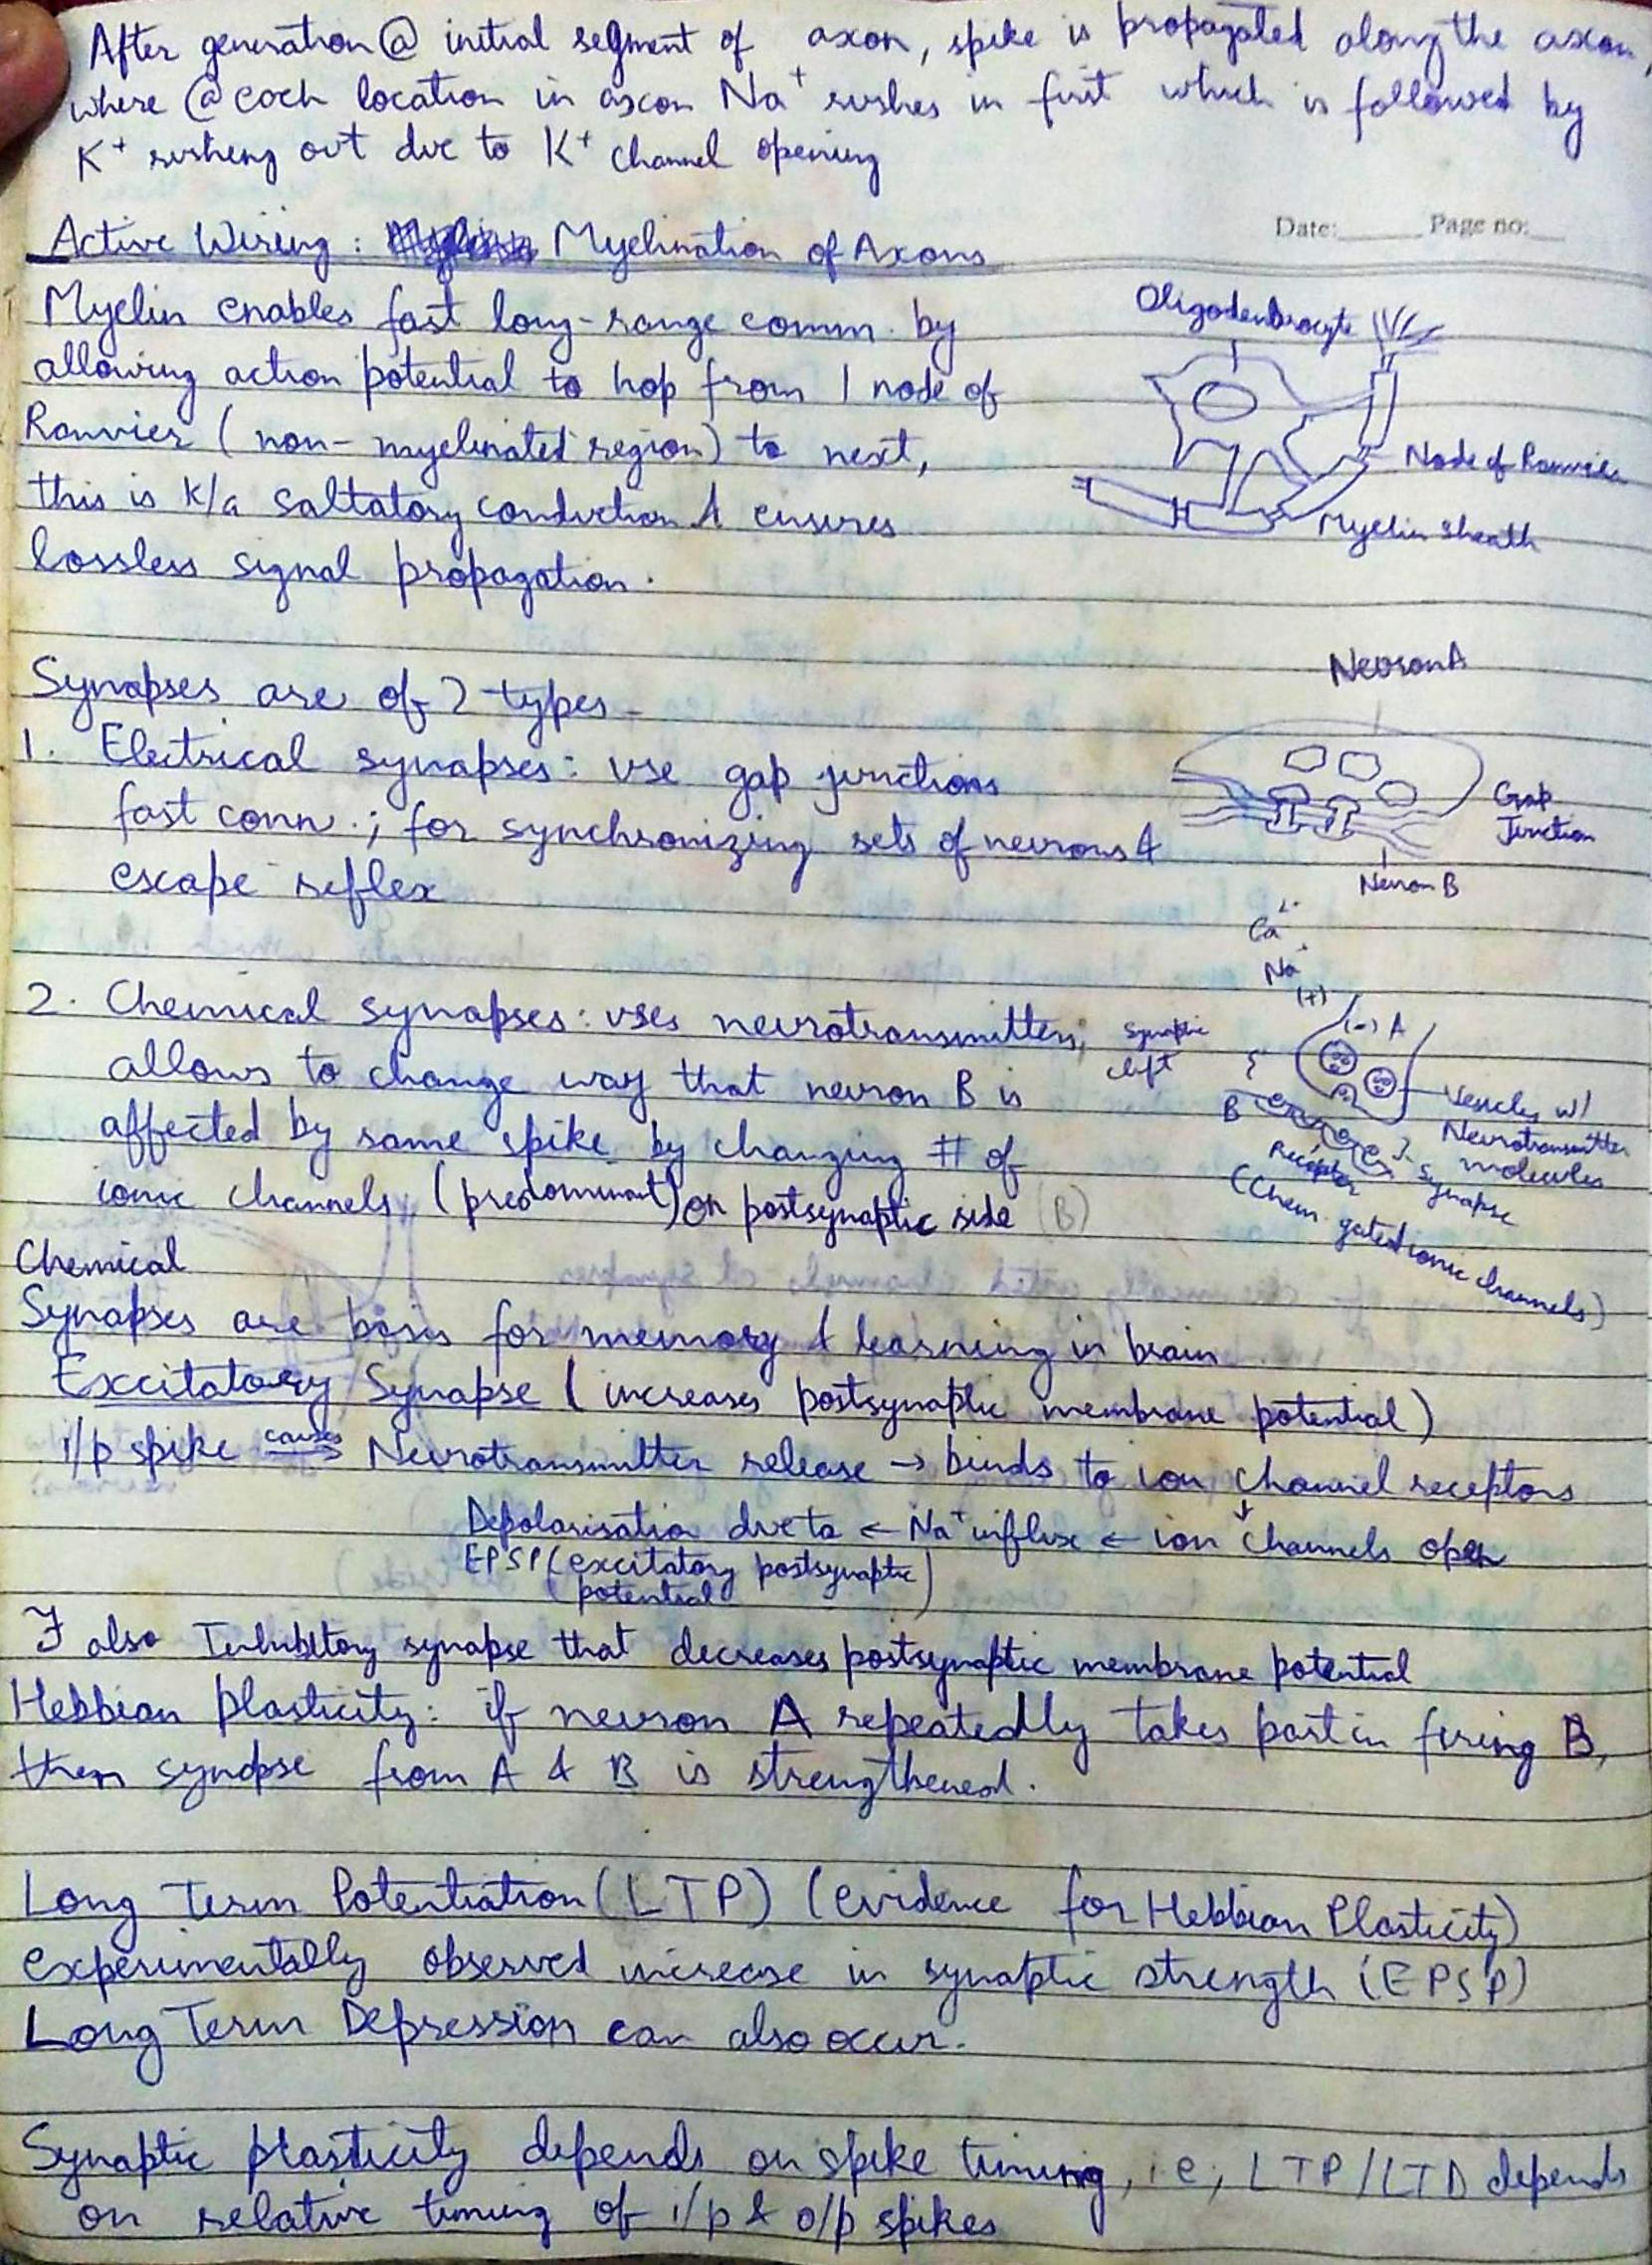 After generation @ initial segment of axon, spike is propagated along the axon,
where @ each location in axon Na⁺ rushes in first which is followed by
K⁺ rushing out due to K⁺ channel opening
Date:______ Page no:___
Active Wiring : Myelination of Axons
Myelin enables fast long-range comm. by
allowing action potential to hop from 1 node of
Ranvier (non-myelinated region) to next,
this is k/a saltatory conduction & ensures
lossless signal propagation.
Oligodendrocyte
Node of Ranvier
Myelin Sheath
Synapses are of 2 types -
1. Electrical synapses: use gap junctions
fast conn.; for synchronizing sets of neurons &
escape reflex
Neuron A
Gap
Junction
Neuron B
2. Chemical synapses: uses neurotransmitters;
allows to change way that neuron B is
affected by same spike by changing # of
ionic channels (predominant) on postsynaptic side (B)
Ca
Na
(+)
(-) A
Synaptic
cleft
B
Vesicles w/
Neurotransmitter
molecules
Synapse
Receptor
(Chem. gated ionic channels)
Chemical
Synapses are basis for memory & learning in brain
Excitatory Synapse (increases postsynaptic membrane potential)
i/p spike causes → Neurotransmitter release → binds to ion channel receptors
↓
Depolarisation due to ← Na⁺ influx ← ion channels open
EPSP (excitatory postsynaptic
potential)
∃ also Inhibitory synapse that decreases postsynaptic membrane potential
Hebbian Plasticity: if neuron A repeatedly takes part in firing B,
then synapse from A & B is strengthened.
Long Term Potentiation (LTP) (evidence for Hebbian Plasticity)
experimentally observed increase in synaptic strength (EPSP)
Long Term Depression can also occur.
Synaptic plasticity depends on spike timing, i.e., LTP/LTD depends
on relative timing of i/p & o/p spikes